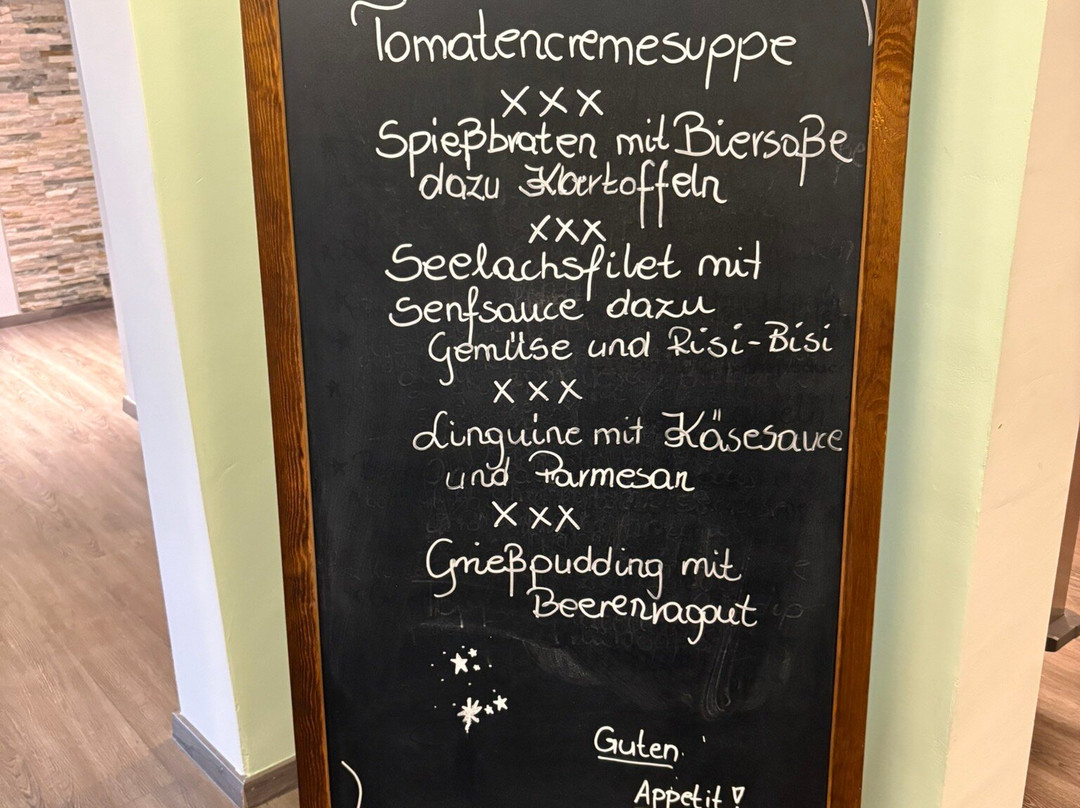 Tomatencremesuppe
x x x
Spießbraten mit Biersoße
dazu Kartoffeln
xxx
Seelachsfilet mit
Senfsauce dazu
Gemüse und Risi-Bisi
x x x
Linguine mit Käsesauce
und Parmesan
x x x
Grießpudding mit
Beerenragout
Guten
Appetit!